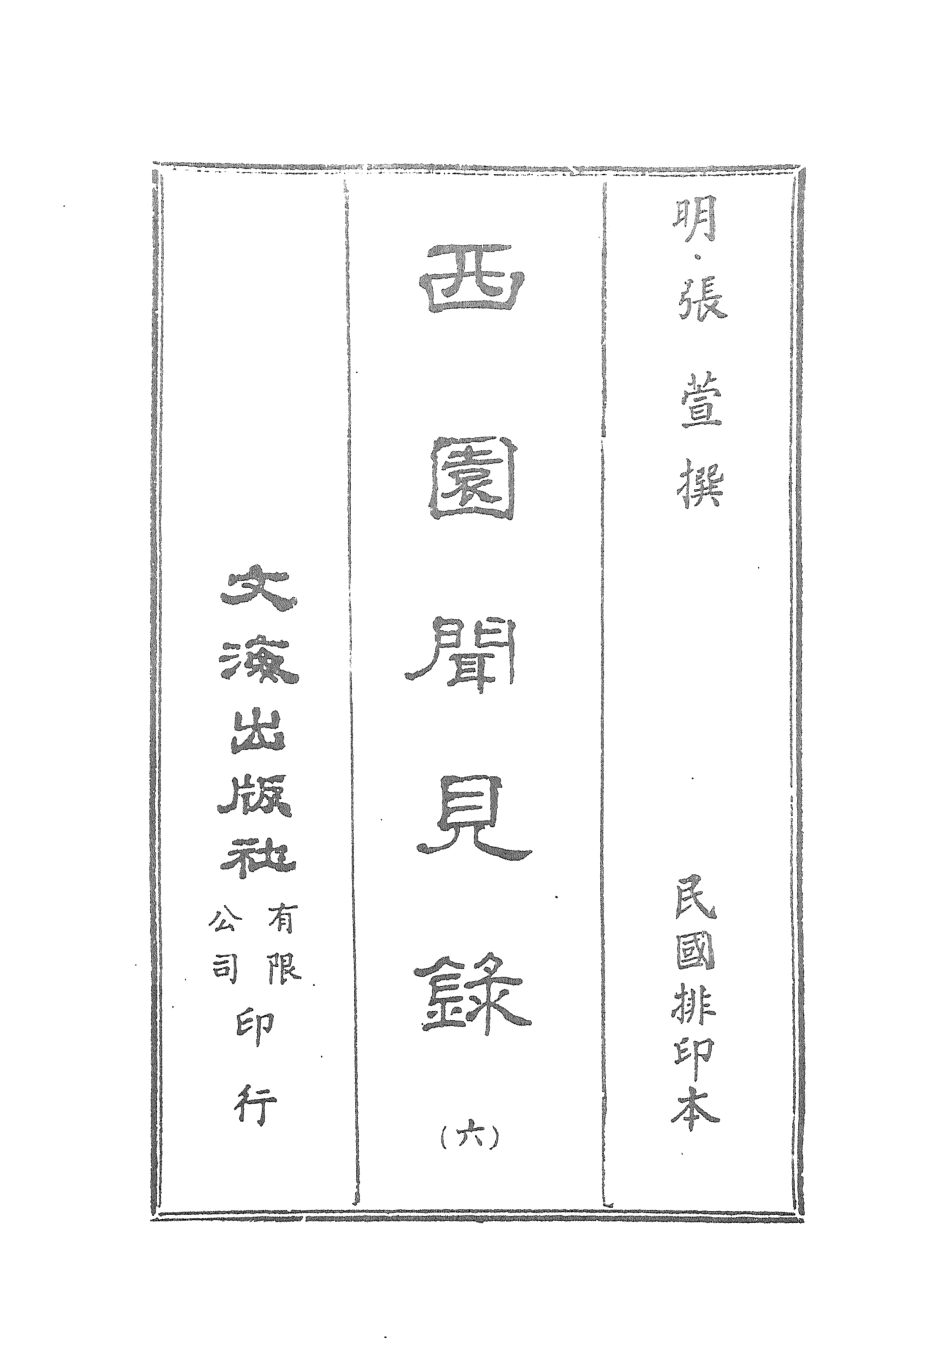 明·張萱撰
民國排印本
西園聞見錄
(六)
文海出版社
有限
公司
印行